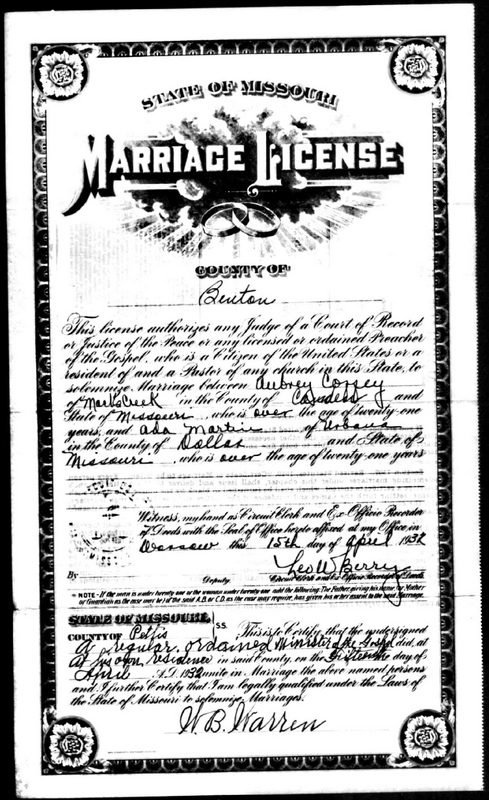 STATE OF MISSOURI
MARRIAGE LICENSE
COUNTY OF
Benton
This license authorizes any Judge of a Court of Record
or Justice of the Peace or any licensed or ordained Preacher
of the Gospel, who is a Citizen of the United States or a
resident of and a Pastor of any church in this State, to
solemnize Marriage between Aubrey
of Macks Creek in the County of Camden and
State of Missouri, who is over the age of twenty-one
years, and Ada Martin of Urbana
in the County of Dallas and State of
Missouri, who is over the age of twenty-one years
Witness, my hand as Circuit Clerk and Ex-Officio Recorder
of Deeds with the Seal of Office hereto affixed at my Office in
Warsaw this 15th day of April 1932
Leo W. Berry
By Deputy. Circuit Clerk and Ex-Officio Recorder of Deeds.
* NOTE - If the man is under twenty one or the woman under twenty one add the following: The Father giving his name (or Mother
or Guardian as the case may be) of the said A.B. or C.D. as the case may require, has given his or her assent to the said Marriage.
STATE OF MISSOURI, SS.
COUNTY OF Pettis This is to Certify, that the undersigned
A regular ordained Minister of the Gospel did, at
at my own residence in said County, on the fifteenth day of
April A.D. 1932 unite in Marriage the above named persons
and I further Certify that I am legally qualified under the Laws of
the State of Missouri to solemnize Marriages.
W. B. Warren